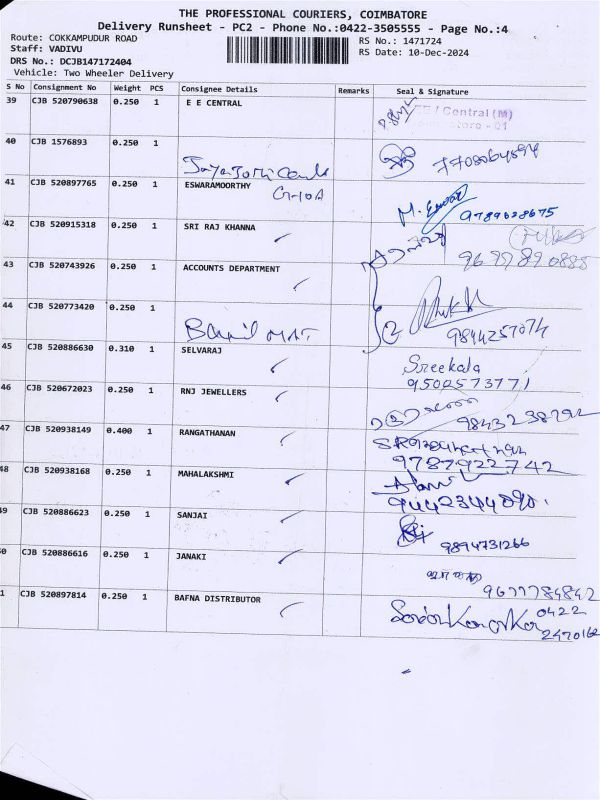 THE PROFESSIONAL COURIERS, COIMBATORE
Delivery Runsheet - PC2 - Phone No.:0422-3505555 - Page No.:4
Route: COKKAMPUDUR ROAD
Staff: VADIVU
DRS No.: DCJB147172404
Vehicle: Two Wheeler Delivery
RS No.: 1471724
RS Date: 10-Dec-2024
S No Consignment No Weight PCS Consignee Details Remarks Seal & Signature
39 CJB 520790638 0.250 1 E E CENTRAL
EE / Central (M)
40 CJB 1576893 0.250 1
41 CJB 520897765 0.250 1 ESWARAMOORTHY
9789628675
42 CJB 520915318 0.250 1 SRI RAJ KHANNA
43 CJB 520743926 0.250 1 ACCOUNTS DEPARTMENT
44 CJB 520773420 0.250 1
9844257074
45 CJB 520886630 0.310 1 SELVARAJ
Sreekala
9500573771
46 CJB 520672023 0.250 1 RNJ JEWELLERS
47 CJB 520938149 0.400 1 RANGATHANAN
9787922742
48 CJB 520938168 0.250 1 MAHALAKSHMI
49 CJB 520886623 0.250 1 SANJAI
9894731266
0 CJB 520886616 0.250 1 JANAKI
9677784842
1 CJB 520897814 0.250 1 BAFNA DISTRIBUTOR
0422
2470162